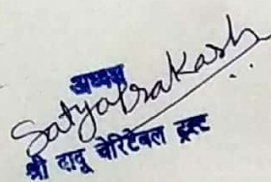 अध्यक्ष
SatyaPrakash
श्री दादू चेरिटेबल ट्रस्ट